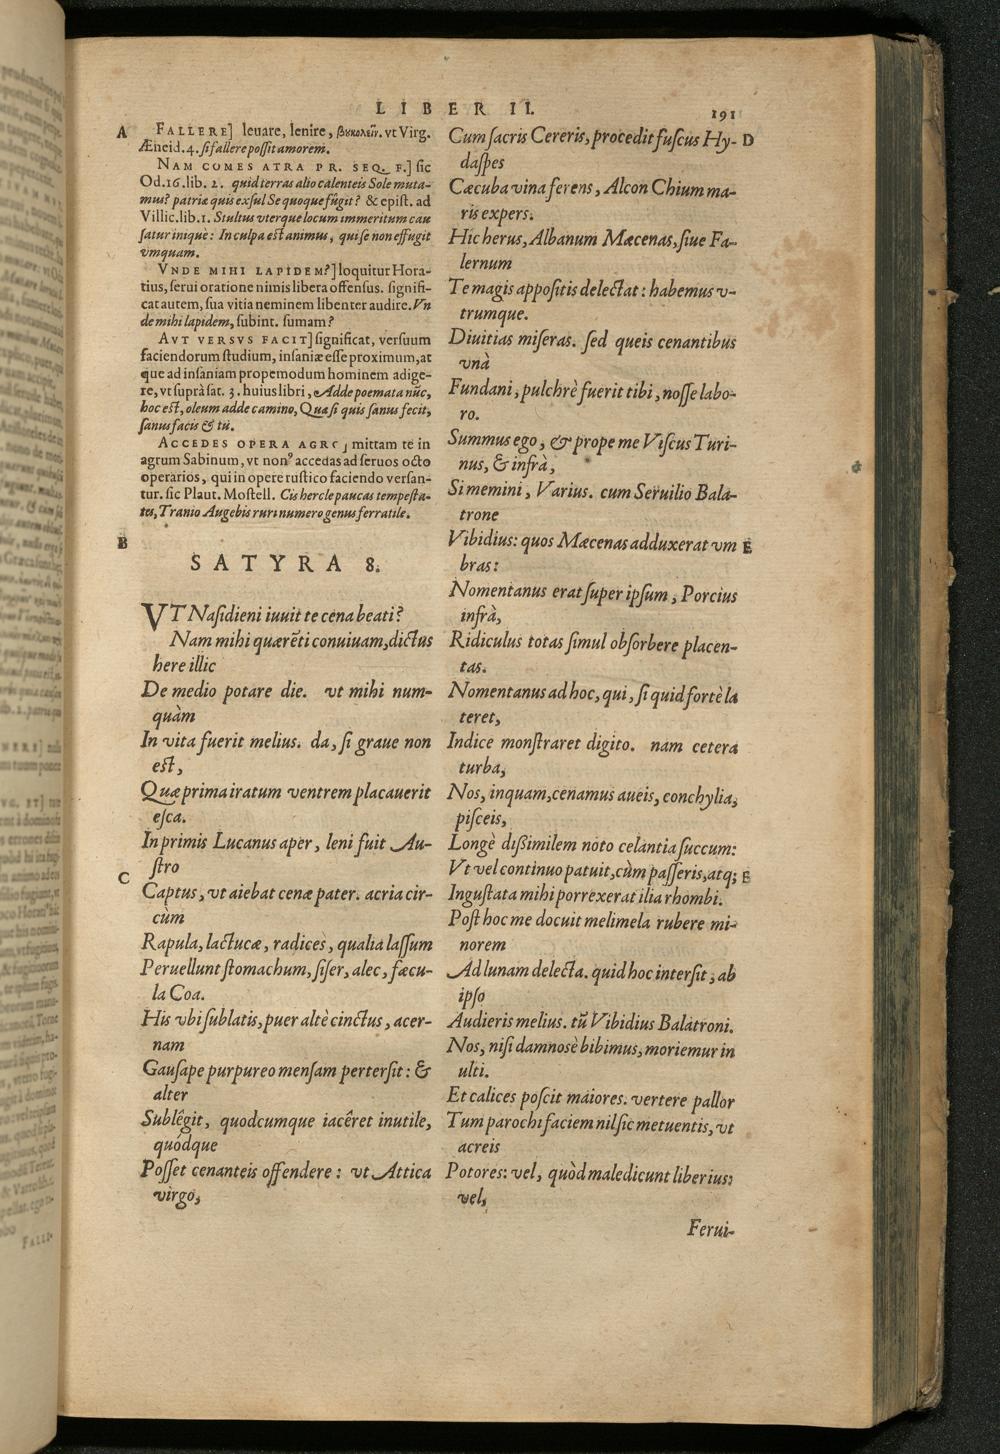 LIBER II.
191
A
FALLERE] leuare, lenire, βυκολεῖν. vt Virg.
Æneid. 4. si fallere possit amorem.
NAM COMES ATRA PR. SEQ. F.] sic
Od. 16. lib. 2. quid terras alio calenteis Sole muta-
mus? patriæ quis exsul Se quoque fûgit? & epist. ad
Villic. lib. 1. Stultus vterque locum immeritum cau
satur iniquè: In culpa est animus, qui se non effugit
vmquam.
VNDE MIHI LAPIDEM?] loquitur Hora-
tius, serui oratione nimis libera offensus. signifi-
cat autem, sua vitia neminem libenter audire. Vn
de mihi lapidem, subint. sumam?
AVT VERSVS FACIT] significat, versuum
faciendorum studium, insaniæ esse proximum, at
que ad insaniam propemodum hominem adige-
re, vt suprà sat. 3. huius libri, Adde poemata nūc,
hoc est, oleum adde camino, Quæ si quis sanus fecit,
sanus facis & tú.
ACCEDES OPERA AGRO] mittam te in
agrum Sabinum, vt nonꝰ accedas ad seruos octo
operarios, qui in opere rustico faciendo versan-
tur. sic Plaut. Mostell. Cis hercle paucas tempesta-
tes, Tranio Augebis ruri numero genus ferratile.
B
SATYRA 8.
VT Nasidieni iuuit te cena beati?
Nam mihi quærēti conuiuam, dictus
here illic
De medio potare die. vt mihi num-
quàm
In vita fuerit melius. da, si graue non
est,
Quæ prima iratum ventrem placauerit
esca.
In primis Lucanus aper, leni fuit Au-
stro
C
Captus, vt aiebat cenæ pater. acria cir-
cùm
Rapula, lactucæ, radices, qualia lassum
Peruellunt stomachum, siser, alec, fæcu-
la Coa.
His vbi sublatis, puer altè cinctus, acer-
nam
Gausape purpureo mensam pertersit: &
alter
Sublêgit, quodcumque iacêret inutile,
quódque
Posset cenanteis offendere: vt Attica
virgo,
Cum sacris Cereris, procedit fuscus Hy-
D
daspes
Cæcuba vina ferens, Alcon Chium ma-
ris expers.
Hic herus, Albanum Mæcenas, siue Fa-
lernum
Te magis appositis delectat: habemus v-
trumque.
Diuitias miseras. sed queis cenantibus
vnà
Fundani, pulchrè fuerit tibi, nosse labo-
ro.
Summus ego, & prope me Viscus Turi-
nus, & infrà,
Si memini, Varius. cum Seruilio Bala-
trone
Vibidius: quos Mæcenas adduxerat vm
E
bras:
Nomentanus erat super ipsum, Porcius
infrà,
Ridiculus totas simul obsorbere placen-
tas.
Nomentanus ad hoc, qui, si quid fortè la
teret,
Indice monstraret digito. nam cetera
turba,
Nos, inquam, cenamus aueis, conchylia,
pisceis,
Longè dissimilem noto celantia succum:
Vt vel continuo patuit, cùm passeris, atq;
E
Ingustata mihi porrexerat ilia rhombi.
Post hoc me docuit melimela rubere mi-
norem
Ad lunam delecta. quid hoc intersit, ab
ipso
Audieris melius. tū Vibidius Balatroni.
Nos, nisi damnosè bibimus, moriemur in
ulti.
Et calices poscit maiores. vertere pallor
Tum parochi faciem nil sic metuentis, vt
acreis
Potores: vel, quòd maledicunt liberius:
vel,
Ferui-